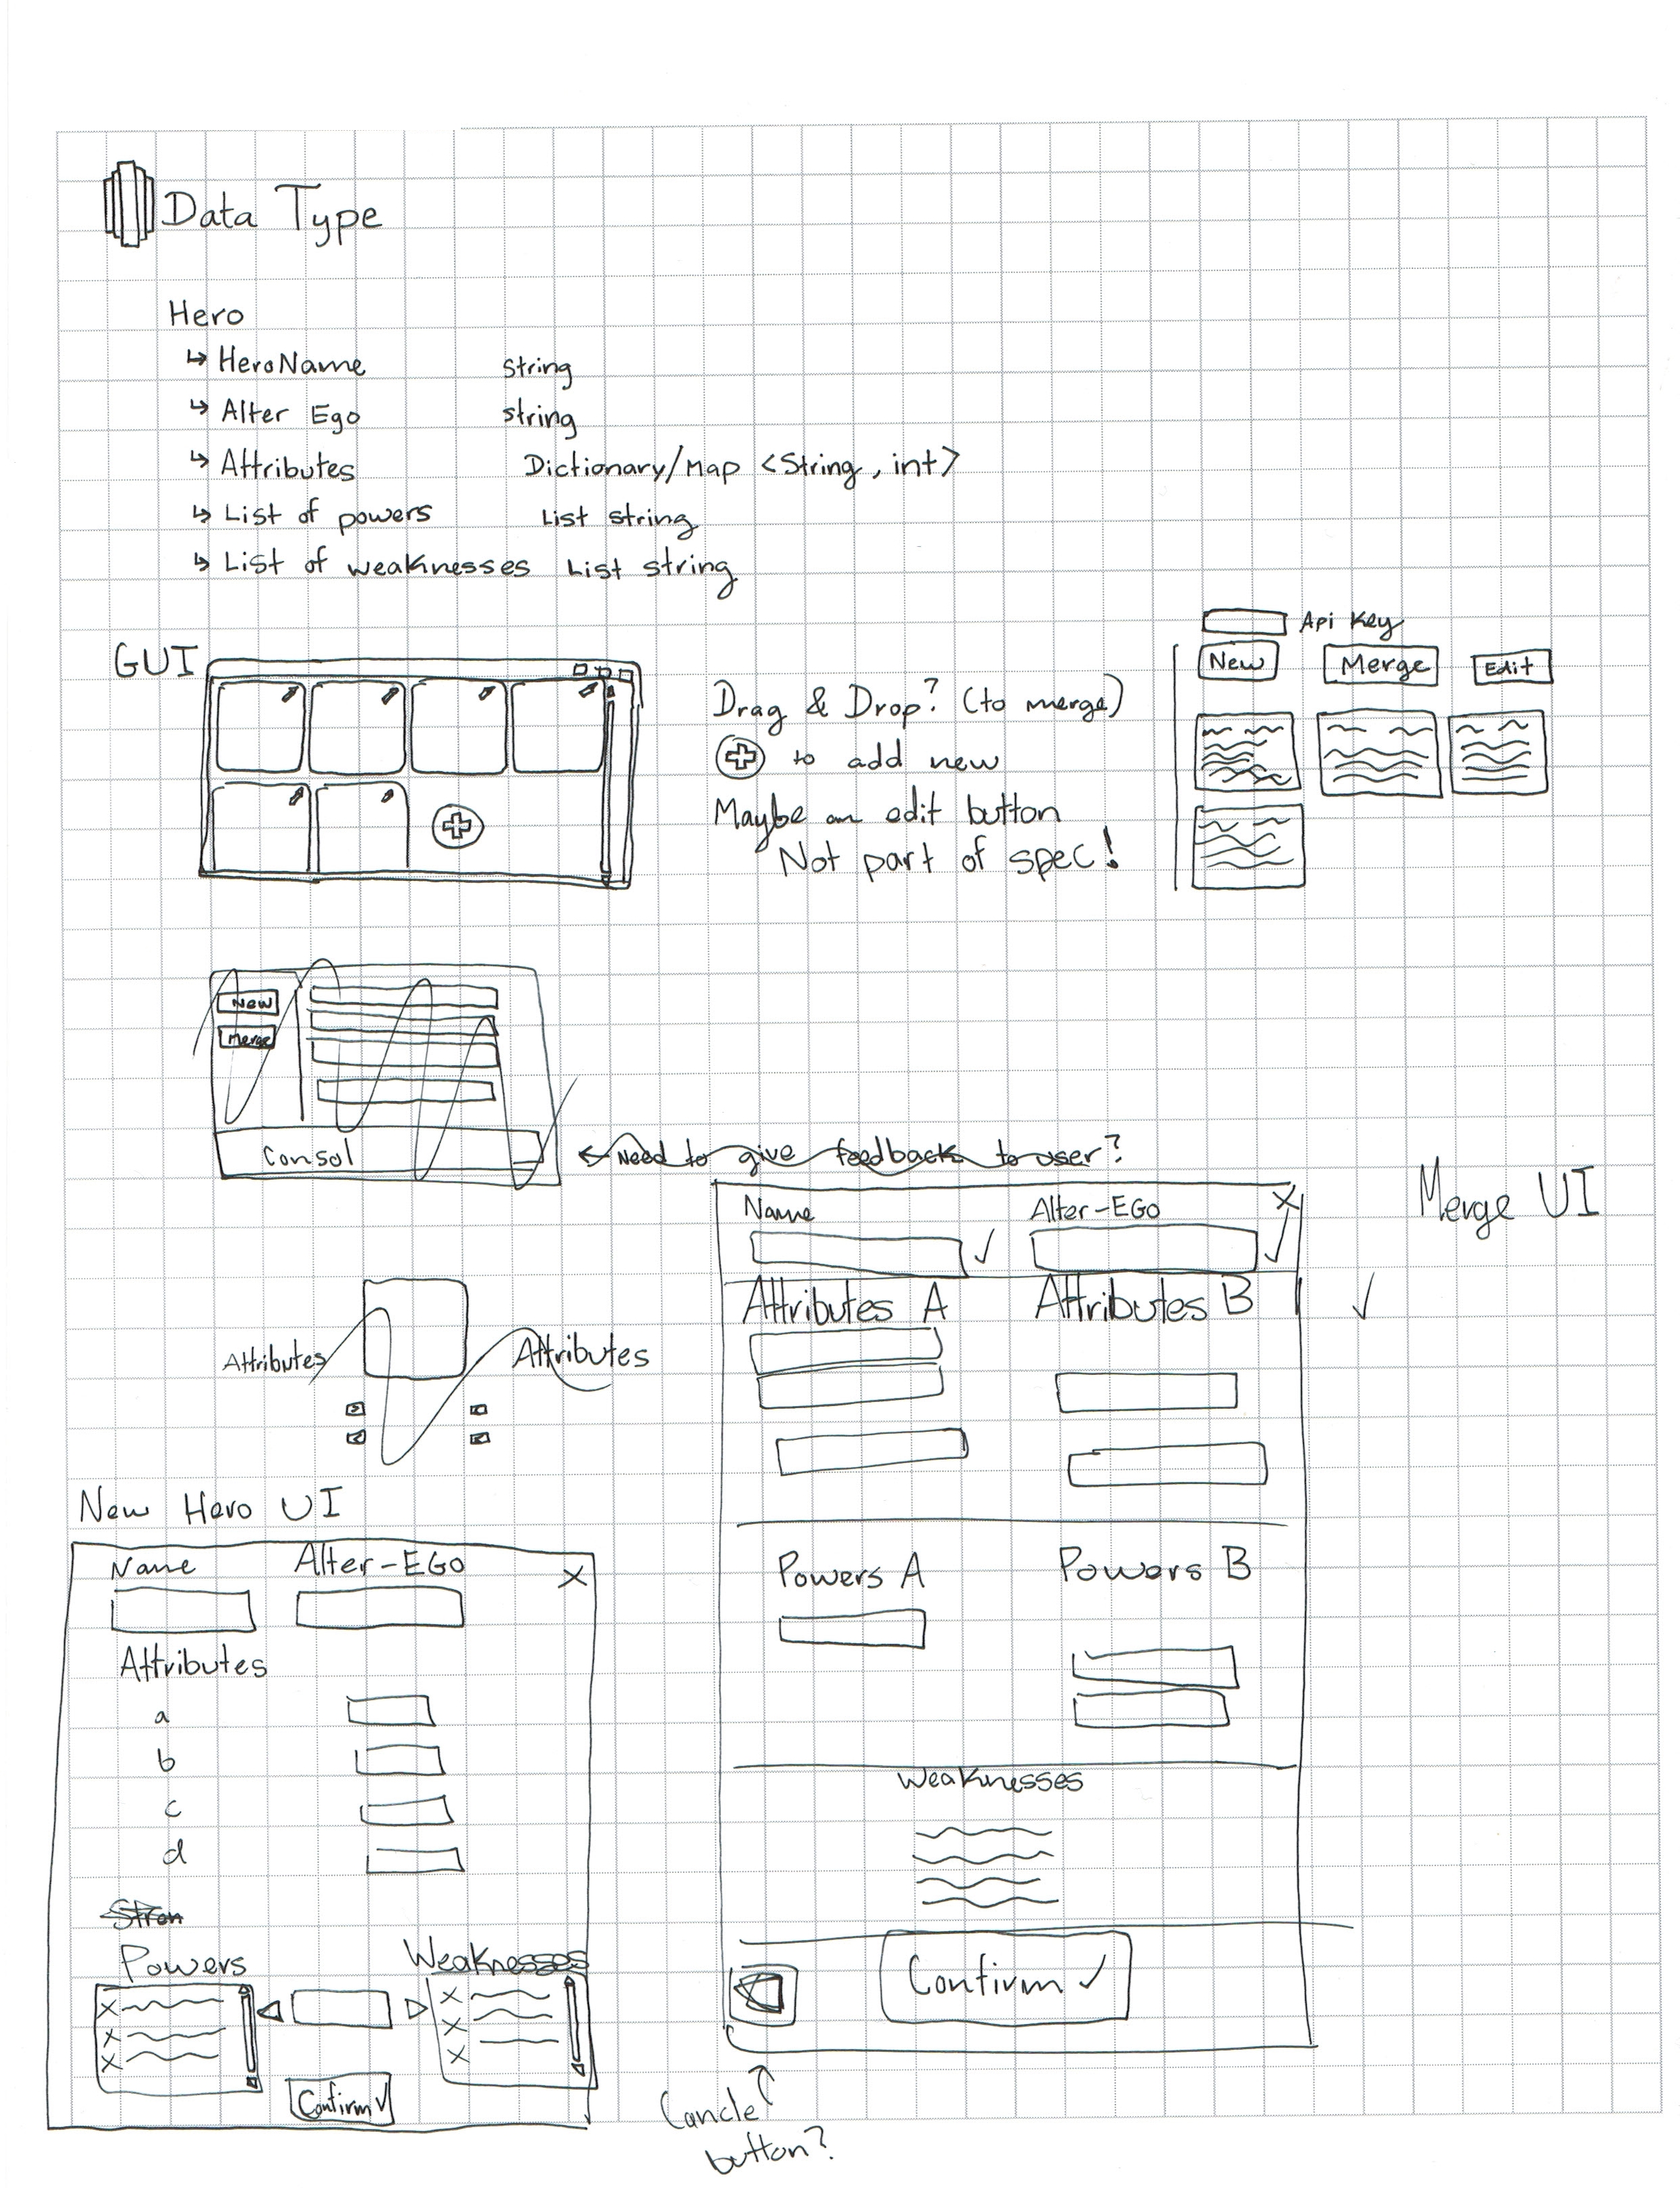 Data Type
Hero
↳ HeroName string
↳ Alter Ego string
↳ Attributes Dictionary/Map <String, int>
↳ List of powers List string
↳ List of weaknesses List string
GUI
Drag & Drop? (to merge)
⊕ to add new
Maybe an edit button
Not part of spec!
Api Key
New Merge Edit
New
Merge
Consol
← Need to give feedback to user?
Attributes Attributes
Merge UI
Name Alter-EGO X
✓ ✓
Attributes A Attributes B ✓
Powers A Powers B
Weaknesses
Confirm ✓
Cancle
button?
New Hero UI
Name Alter-EGO X
Attributes
a
b
c
d
Stren
Powers Weaknesses
X X
X X
X X
Confirm ✓